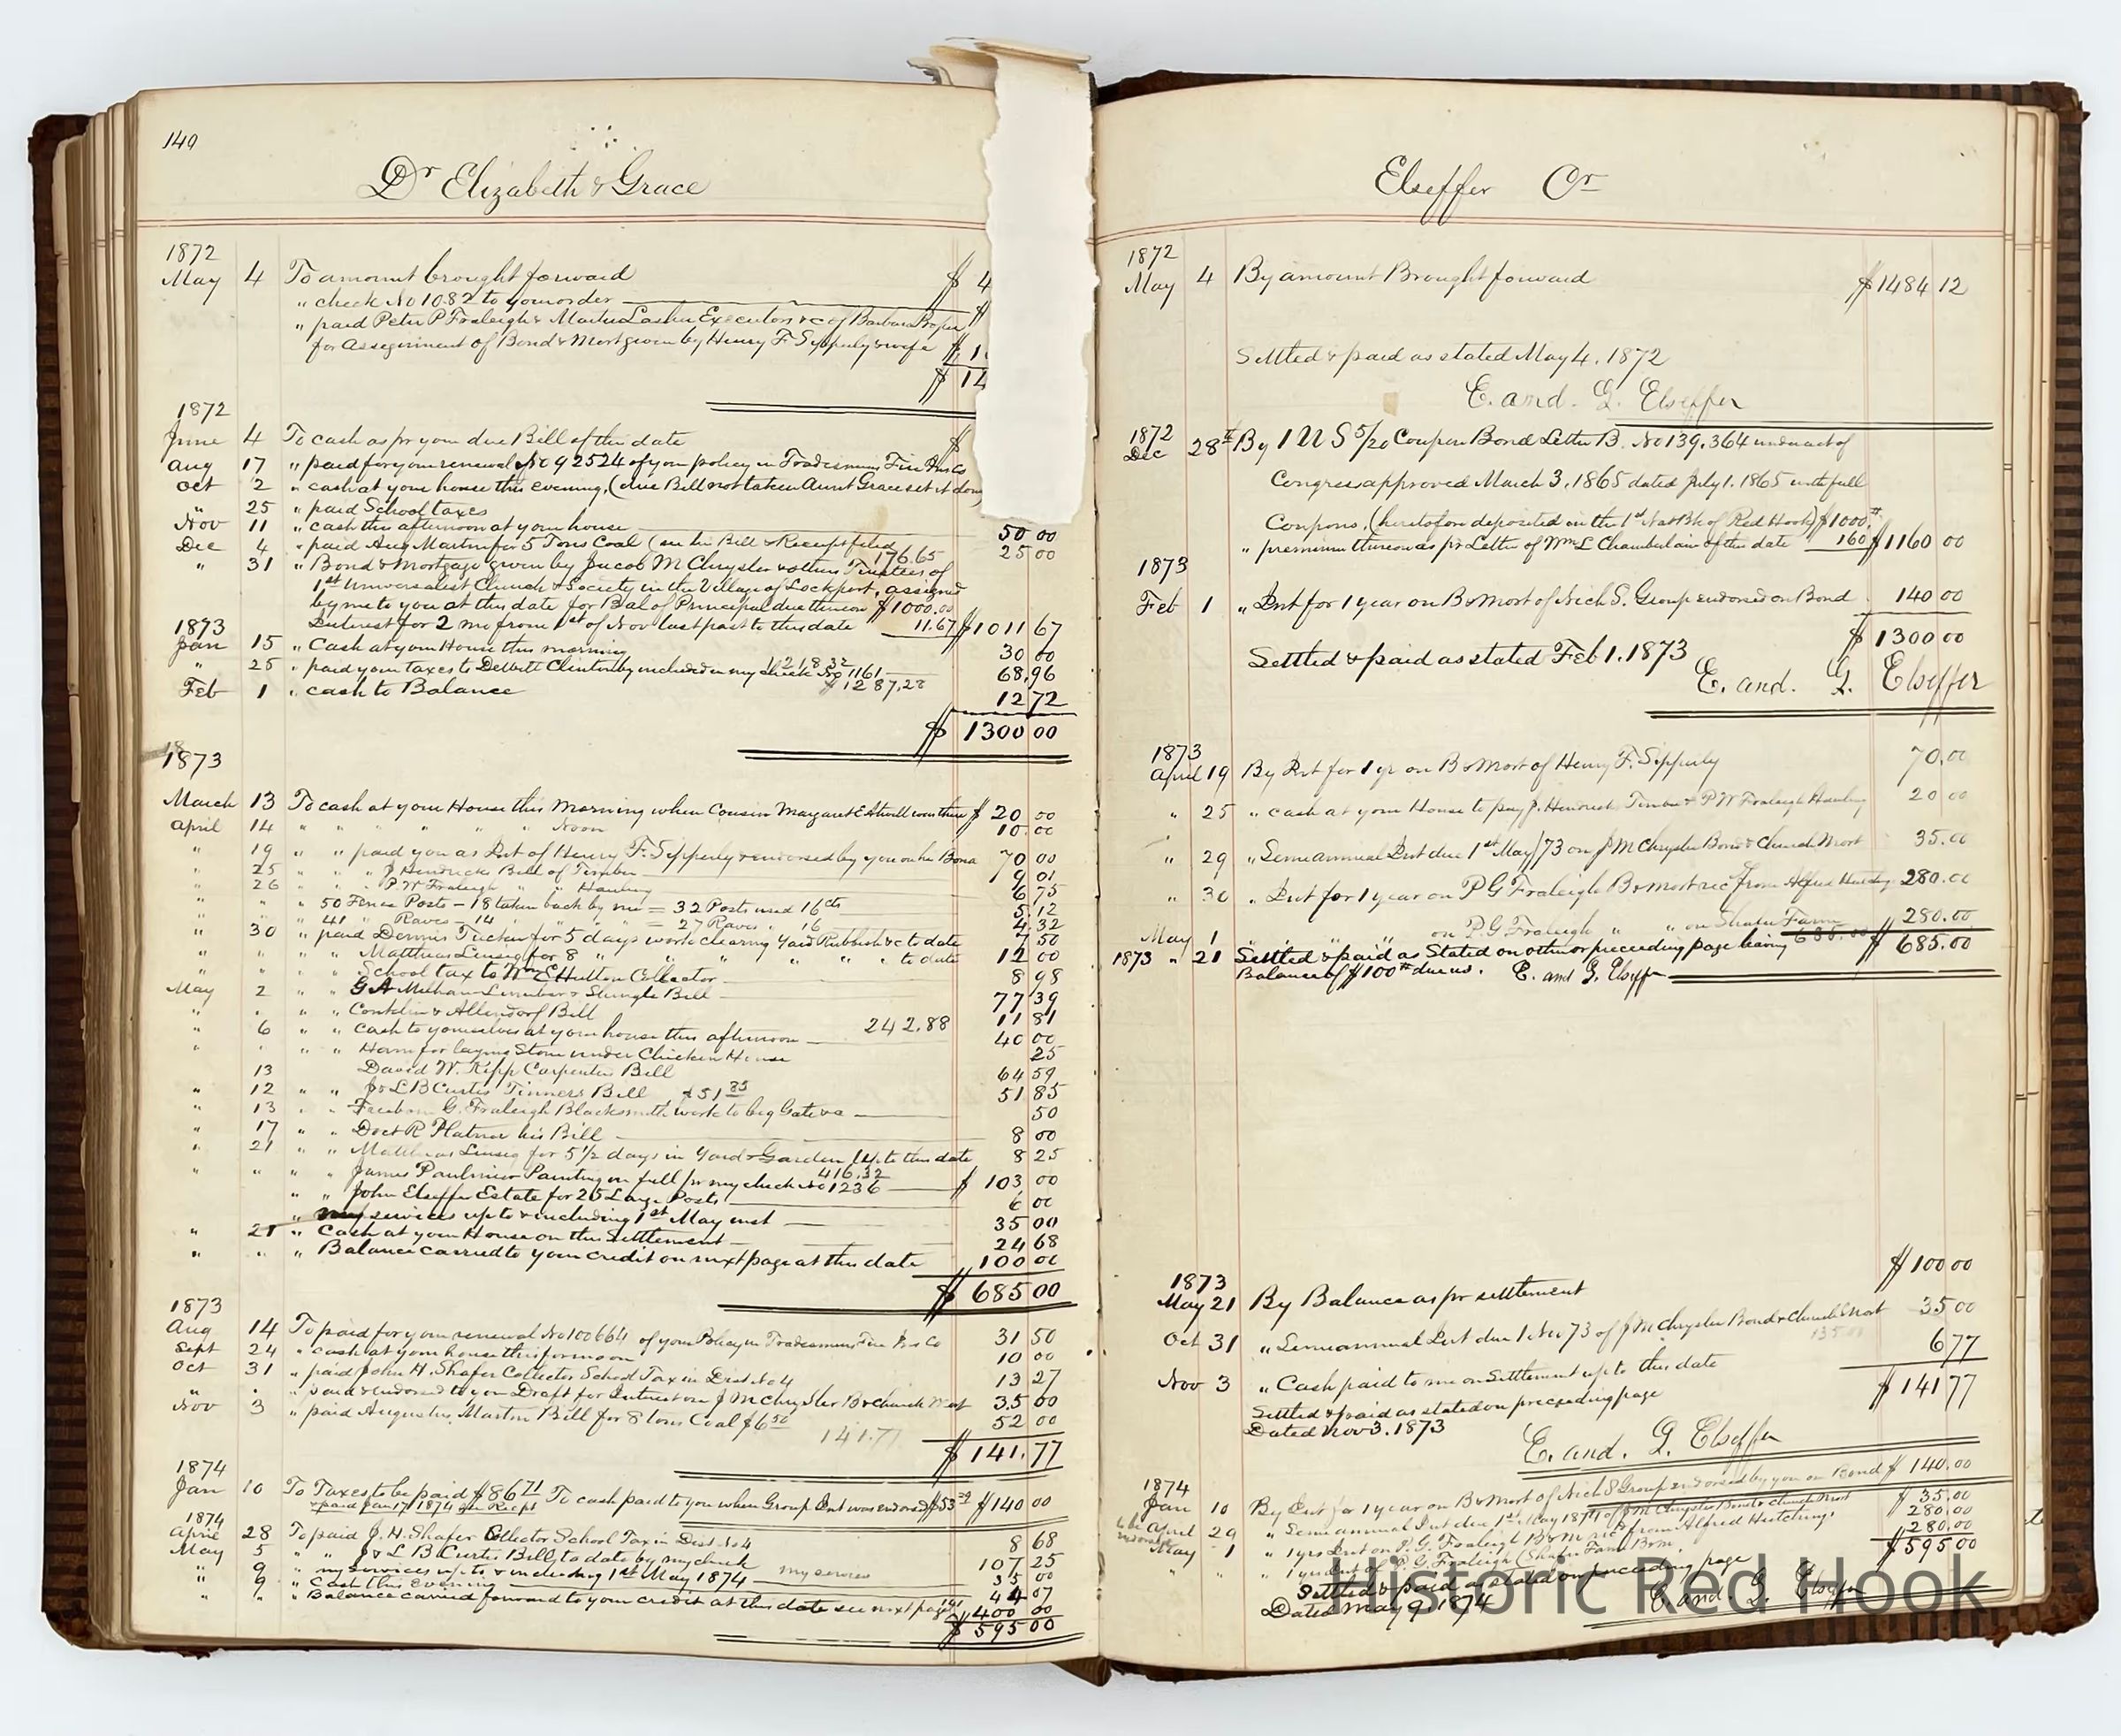 149
Dr Elizabeth & Grace
1872
May 4 To amount brought forward $ 4
" check No 1082 to your order $
" paid Peter P Fraleigh & Martin Lasher Executors &c of Barbara
for Assignment of Bond & Mort given by Henry F. Sipperly & wife $ 1
$ 14
1872
June 4 To cash as pr your due Bill of this date $
Aug 17 " paid for your renewal No 92524 of your policy in Tradesmens Fire Ins Co
Oct 2 " cash at your house this evening, (due Bill not taken Aunt Grace set it down
" 25 " paid School taxes
Nov 11 " cash this afternoon at your house 50 00
Dec 4 " paid Aug Martin for 5 Tons Coal (see his Bill & Receipt filed 25 00
176.65
" 31 " Bond & Mortgage given by Jacob M Chrysler & others Trustees of
1st Universalist Church & Society in the Village of Lockport, assigned
by me to you at this date for Bal of Principal due thereon $1000.00
Interest for 2 mo from 1st of Nov last past to this date 11.67 $1011 67
1873
Jan 15 " Cash at your House this morning 30 00
1218.32
" 25 " paid your taxes to Dewitt Clinton by included in my check No 1161 68,96
$1287,28
Feb 1 " cash to Balance 12 72
$ 1300 00
1873
March 13 To cash at your House this Morning when Cousin Margaret E Atwill was there $ 20 00
April 14 " " " " " " Noon 10.00
" 19 " " paid you as Int of Henry F. Sipperly & endorsed by you on his Bond 70 00
" 25 " " " J Hendrick Bill of Timber 9 01
" 26 " " " P. W Fraleigh " " Hauling 6 75
" " " 50 Fence Posts - 18 taken back by me = 32 Posts used 16cts 5.12
" " " 41 " Raves - 14 " " " " = 27 Raves " 16 4.32
" 30 " paid Dennis Tucker for 5 days work clearing Yard Rubbish &c to date 7 50
" " " " Matthias Linsig for 8 " " " " " " to date 12 00
" " " " School tax to Wm E Hutton Collector 8 98
May 2 " " G A Milham Lumber & Shingle Bill 77 39
" " " " Conklin & Allendorf Bill 11 81
" 6 " " cash to yourselves at your house this afternoon 242.88 40 00
" " " " Ham for laying Stone under Chicken House 25
13 David W. Kipp Carpenter Bill 64 59
" 12 " " J & L B Curtis Tinners Bill $51 85 51 85
" 13 " " Freeborn G. Fraleigh Blacksmith work to big Gate &c 50
" 17 " " Doct R Platner his Bill 8 00
" 21 " " Matthias Linsig for 5 1/2 days in Yard & Garden 14/. to this date 8 25
416.32
" " " " James Paulmier Painting in full pr my check No 1236 $ 103 00
" " John Elseffer Estate for 25 Large Posts 6 00
" my services up to & including 1st May inst 35 00
" 21 " Cash at your House on this Settlement 24 68
" " " Balance carried to your credit on next page at this date 100 00
$ 685 00
1873
Aug 14 To paid for your renewal No 100664 of your Policy in Tradesmens Fire Ins Co 31 50
Sept 24 " cash at your house this forenoon 10 00
Oct 31 " paid John H. Shafer Collector School Tax in Dist No 4 13 27
" " " paid & endorsed to you Draft for Interest on J M Chrysler B & Church Mort 35 00
Nov 3 " paid Augustus Martin Bill for 8 tons Coal $6 50 52 00
141.77
$ 141.77
1874
Jan 10 To Taxes to be paid $86 71 To cash paid to you when Group Int was endorsed $53 29 $140 00
& paid Jan 17 1874 see Recpt
1874
April 28 To paid J. H. Shafer Collector School Tax in Dist No 4 8 68
May 5 " " J & L B Curtis Bill to date by my check 107 25
" 9 " my services up to & including 1st May 1874 my services 35 00
" 9 " Cash this evening 44 07
" " " Balance carried forward to your credit at this date see next page $400 00
$ 595 00
Elseffer Cr
1872
May 4 By amount Brought forward $1484 12
Settled & paid as stated May 4. 1872
E. and. G. Elseffer
1872
Dec 28th By 1 U S 5/20 Coupon Bond Letter B. No 139.364 under act of
Congress approved March 3, 1865 dated July 1. 1865 with full
Coupons, (heretofore deposited in the 1st Nat Bk of Red Hook) $1000.
" premium thereon as pr Letter of Wm L Chamberlain of this date 160 $1160 00
1873
Feb 1 " Int for 1 year on B & Mort of Nich S. Group endorsed on Bond 140 00
$ 1300 00
Settled & paid as stated Feb 1. 1873
E. and. G. Elseffer
1873
April 19 By Int for 1 yr on B & Mort of Henry F. Sipperly 70.00
" 25 " cash at your House to pay J. Hendrick Timber & P W Fraleigh Hauling 20 00
" 29 " Semi annual Int due 1st May/73 on J M Chrysler Bond & Church Mort 35.00
" 30 " Int for 1 year on P G Fraleigh B & mort rec from Alfred Hutchings 280.00
May 1 " " " " " on P. G Fraleigh " " on Shafer Farm 280.00
685.00
1873 " 21 Settled & paid as Stated on other or preceeding page leaving $ 685.00
Balance of $100 due us. E. and G. Elseffer
$100 00
1873
May 21 By Balance as pr settlement
Oct 31 " Semi annual Int due 1 Nov 73 of J M Chrysler Bond & Church Mort 35 00
135.00
6 77
Nov 3 " Cash paid to me on Settlement up to this date
$ 141 77
Settled & paid as stated on preceeding page
Dated Nov 3. 1873
E. and. G. Elseffer
1874
Jan 10 By Int for 1 year on B & Mort of Nich S Group endorsed by you on Bond $ 140.00
" Semi annual Int due 1st May 1874 of J M Chrysler Bond & Church Mort $ 35.00
April 29 " 1 yrs Int on P. G. Fraleigh B & M rec from Alfred Hutchings 280.00
May 1 " 1 yrs Int of P G. Fraleigh (Shafer Farm B & m. 280.00
$595 00
Settled & paid as stated on preceeding page
Dated May 9. 1874
E. and. G. Elseffer
Historic Red Hook